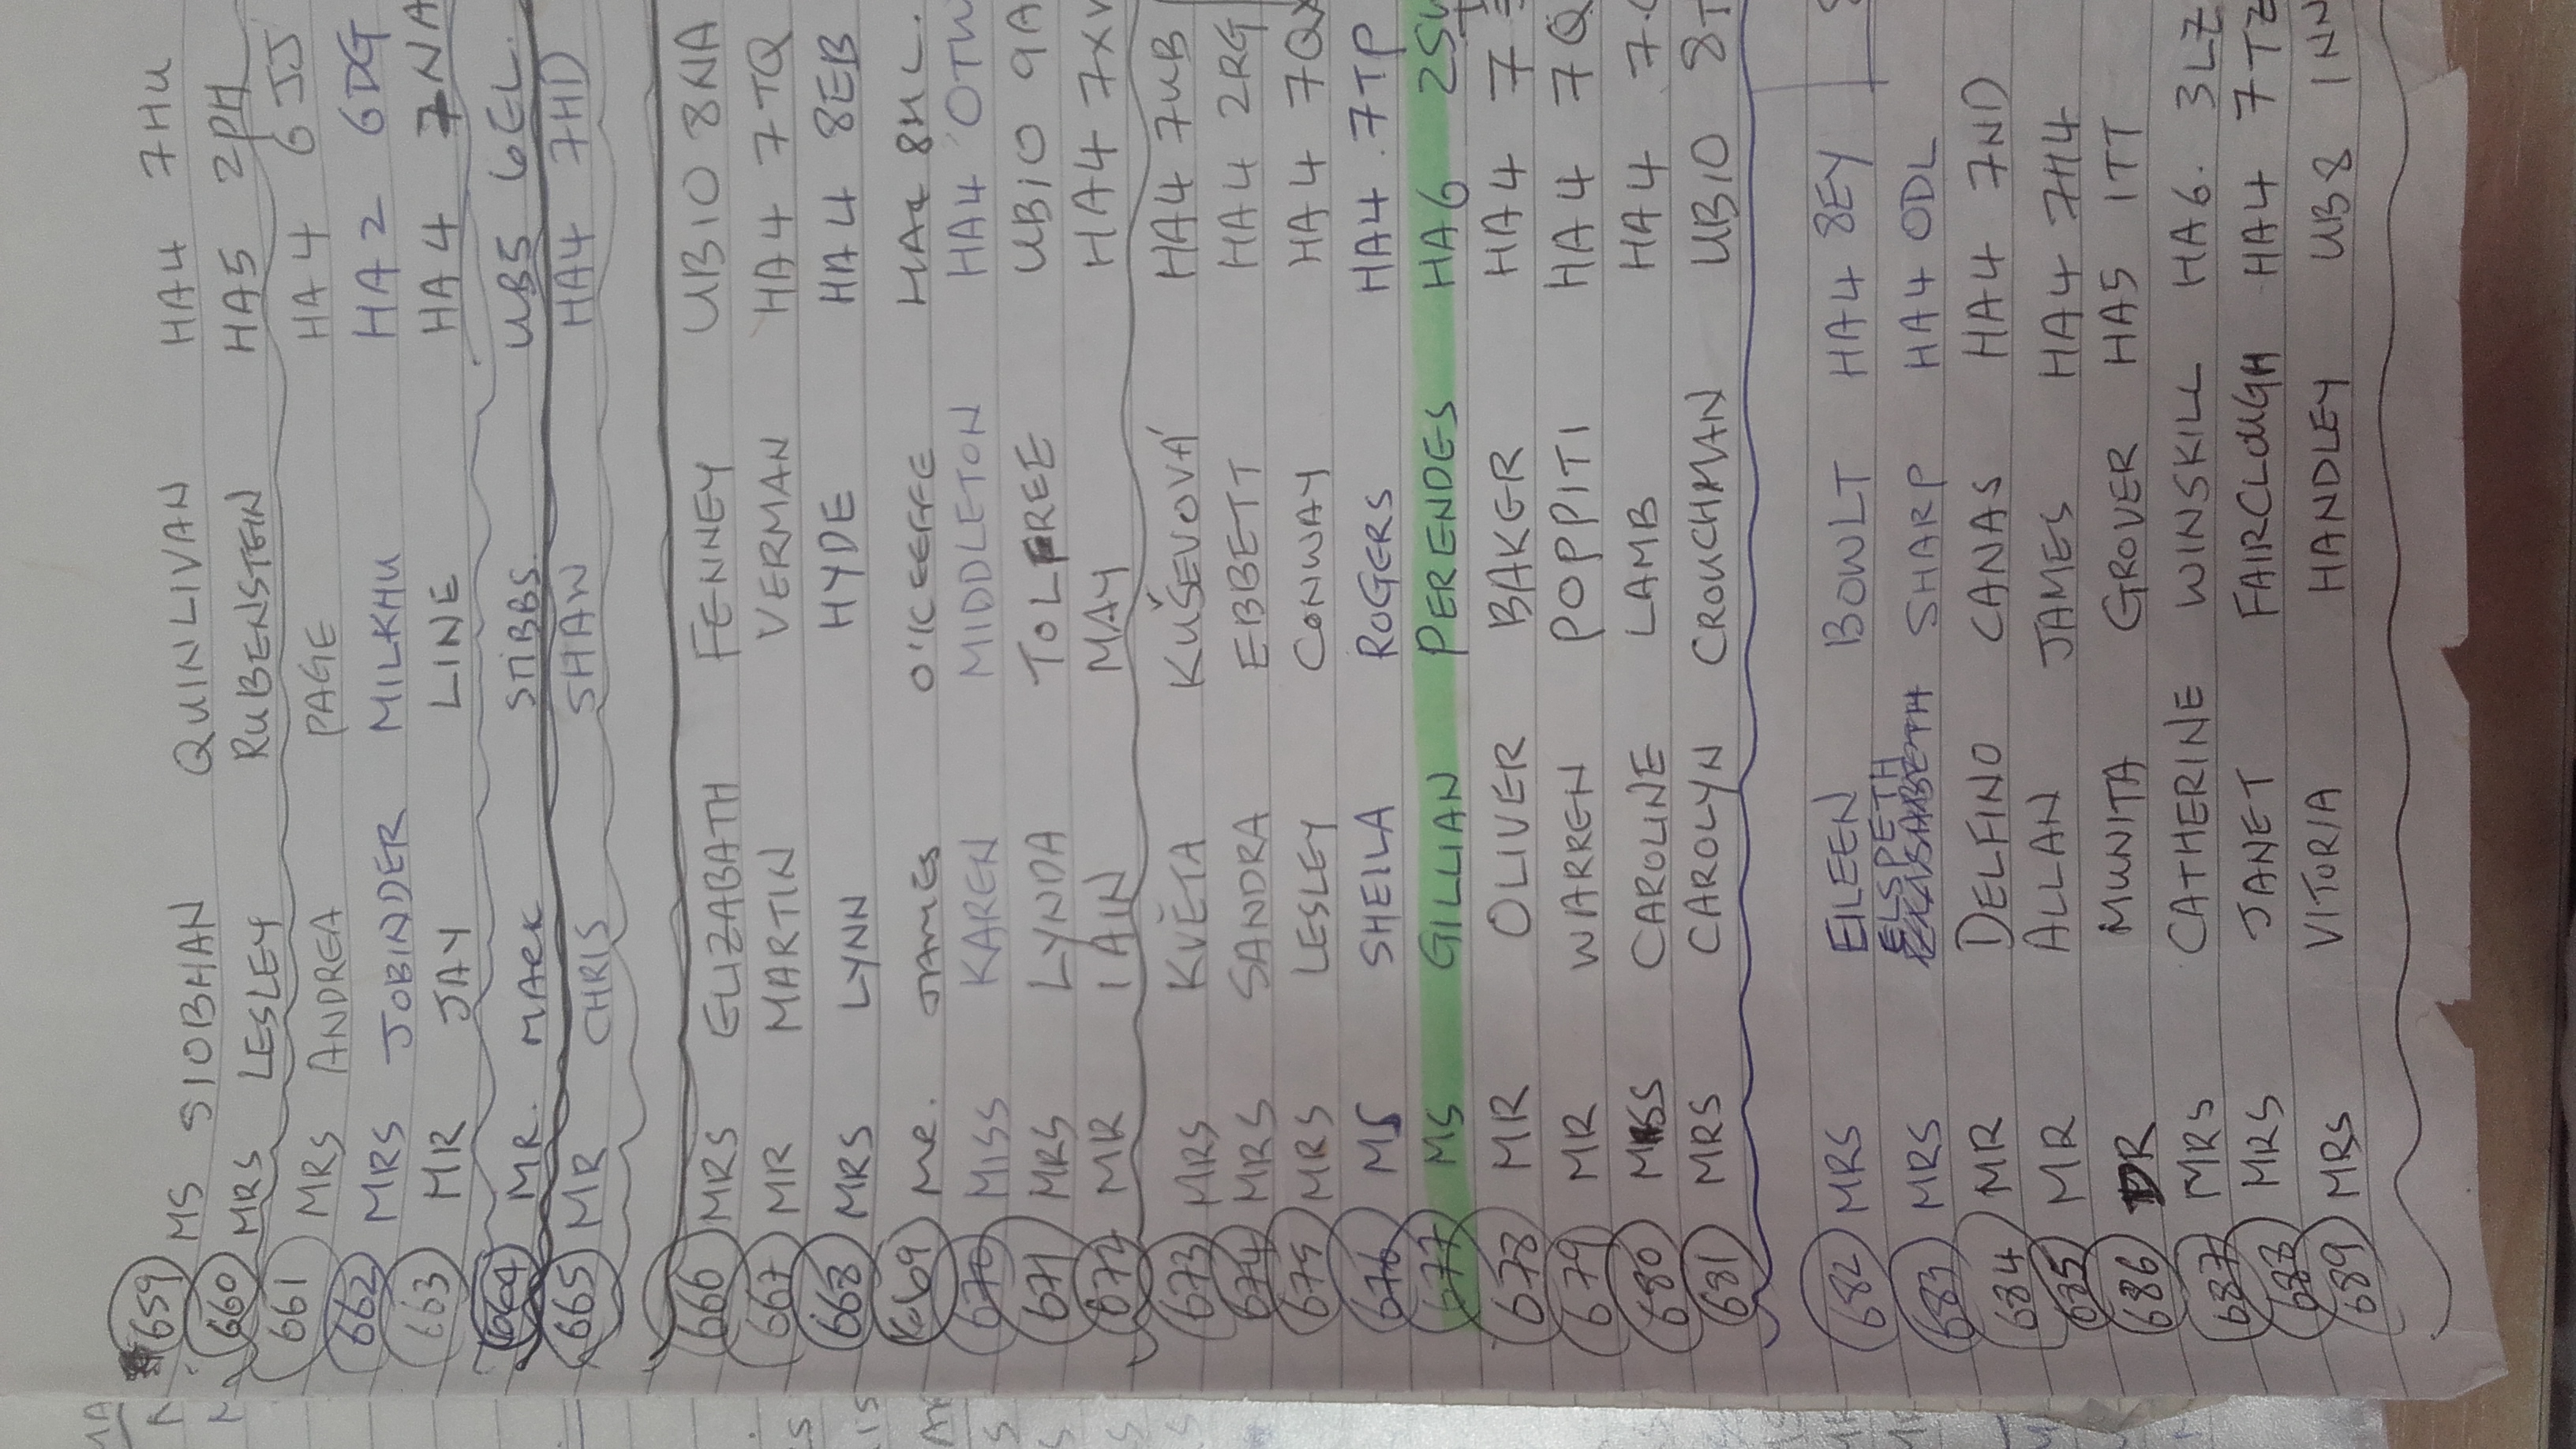 659 MS SIOBHAN QUINLIVAN HA4 7HU
660 MRS LESLEY RUBENSTEIN HA5 2PH
661 MRS ANDREA PAGE HA4 6JJ
662 MRS JOBINDER MILKHU HA2 6DG
663 MR JAY LINE HA4 7NA
664 MR. MARK STIBBS. UB5 6EL.
665 MR CHRIS SHAW HA4 7HD
666 MRS ELIZABATH FENNEY UB10 8NA
667 MR MARTIN VERMAN HA4 7TQ
668 MRS LYNN HYDE HA4 8EB
669 MR. JAMES O'KEEFFE HA4 8HL.
670 MISS KAREN MIDDLETON HA4 0TW
671 MRS LYNDA TOLFREE UB10 9A
672 MR IAIN MAY HA4 7X
673 MRS KVĚTA KUŠEVOVÁ HA4 7UB
674 MRS SANDRA EBBETT HA4 2RG
675 MRS LESLEY CONWAY HA4 7QX
676 MS SHEILA ROGERS HA4 7TP
677 MS GILLIAN PERENDES HA6 2S
678 MR OLIVER BAKER HA4 7
679 MR WARREN POPPITI HA4 7Q
680 MISS CAROLINE LAMB HA4 7
681 MRS CAROLYN CROUCHMAN UB10 8T
682 MRS EILEEN BOWLT HA4 8EY
ELSPETH
683 MRS SHARP HA4 0DL
684 MR DELFINO CANAS HA4 7ND
685 MR ALLAN JAMES HA4 7H4
686 DR MUNITA GROVER HA5 1TT
687 MRS CATHERINE WINSKILL HA6. 3LZ
688 MRS JANET FAIRCLOUGH HA4 7TZ
689 MRS VITORIA HANDLEY UB8 1NN